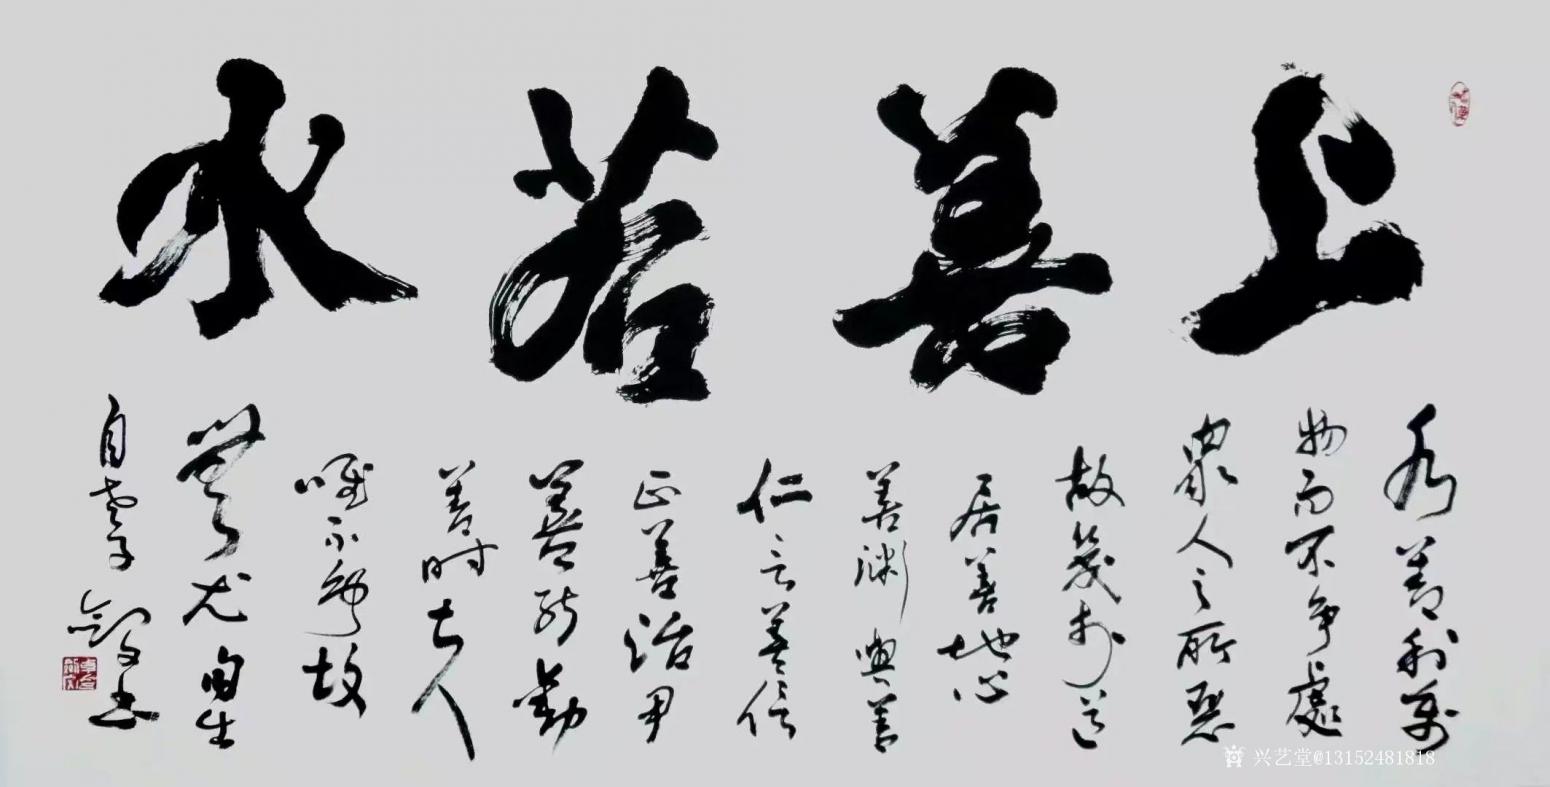 上善若水
水善利萬
物而不争處
衆人之所惡
故幾於道
居善地心
善渊與善
仁言善信
正善治事
善能動
善時夫人
唯不争故
無尤
自書
兴艺堂@13152481818